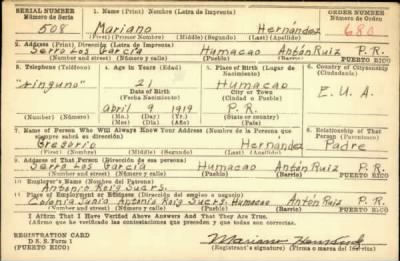 SERIAL NUMBER 1. Name (Print) Nombre (Letra de Imprenta) ORDER NUMBER
Número de Serie Número de Orden
508 Mariano Hernández 680
(Number) (Número) (First) (Primer Nombre) (Middle) (Segundo) (Last) (Apellido)
2. Address (Print) Dirección (Letra de Imprenta)
Serro Los García Humacao Antón Ruiz P. R.
(Number and street) (Número y calle) (Town) (Pueblo) (Barrio) (Barrio) PUERTO RICO
3. Telephone (Teléfono) 4. Age in Years (Edad) 5. Place of Birth (Lugar de Nacimiento) 6. Country of Citizenship (Ciudadanía)
"ninguno" 21 Humacao
Date of Birth City or Town
Fecha Nacimiento (Ciudad o Pueblo) E. U. A.
April 9 1919 P. R.
(Number) (Número) (Mo.) (Day) (Yr.) (State or country)
(Mes) (Día) (Año) (País)
7. Name of Person Who Will Always Know Your Address (Nombre de la Persona que siempre sabrá su dirección) 8. Relationship of That Person (Parentesco)
Gregorio Hernández Padre
(First) (Nombre) (Middle) (Segundo) (Last) (Apellido)
9. Address of That Person (Dirección de esa persona)
Serro Los García Humacao Antón Ruiz P. R.
(Number and street) (Número y calle) (Town) (Pueblo) (Barrio) (Barrio) PUERTO RICO
10 Employer's Name (Nombre del Patrono)
Antonio Roig Sucrs.
11 Place of Employment or Business (Dirección del empleo o negocio)
Colonia Junia Antonio Roig Sucrs. Humacao Antón Ruiz P. R.
(Number and street) (Número y calle) (Town) (Pueblo) (Barrio) (Barrio) PUERTO RICO
I Affirm That I Have Verified Above Answers And That They Are True.
(Afirmo que he verificado las contestaciones que preceden y que todas son ciertas).
REGISTRATION CARD
D. S. S. Form 1 Mariano
(Registrant's signature) (Firma o marca del inscrito)